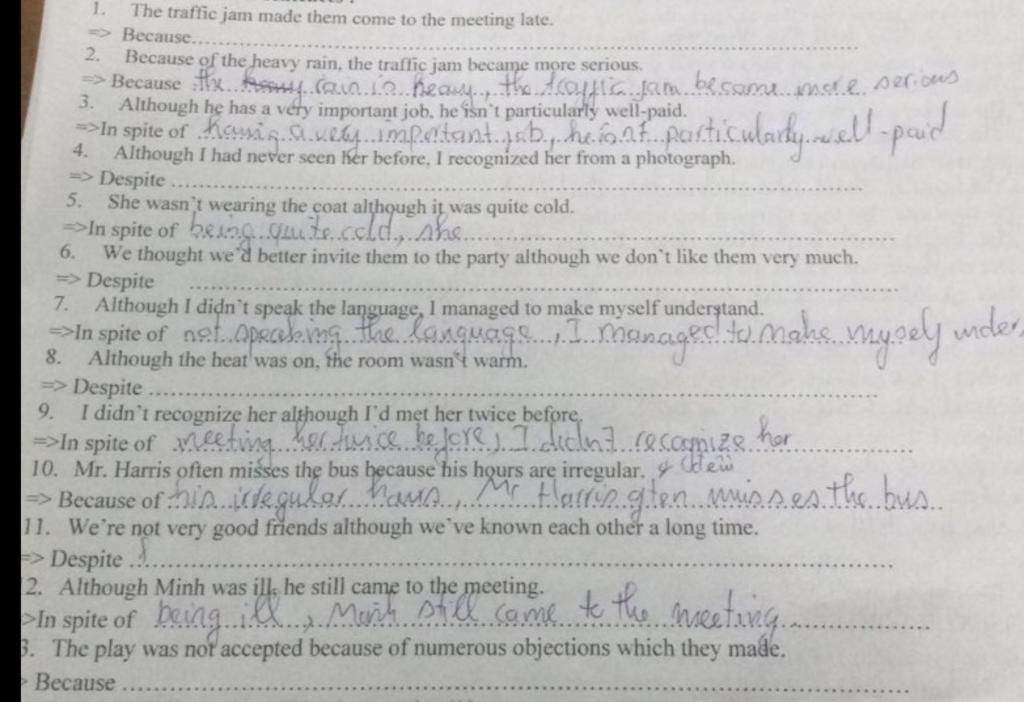 1. The traffic jam made them come to the meeting late.
=> Because..............................
2. Because of the heavy rain, the traffic jam became more serious.
=> Because the heavy rain is heavy, the traffic jam became more serious
3. Although he has a very important job, he isn't particularly well-paid.
=>In spite of having a very important job, he isn't particularly well-paid
4. Although I had never seen her before, I recognized her from a photograph.
=> Despite ..............................
5. She wasn't wearing the coat although it was quite cold.
=>In spite of being quite cold, she
6. We thought we'd better invite them to the party although we don't like them very much.
=> Despite ..............................
7. Although I didn't speak the language, I managed to make myself understand.
=>In spite of not speaking the language, I managed to make mysely under
8. Although the heat was on, the room wasn't warm.
=> Despite ..............................
9. I didn't recognize her although I'd met her twice before.
=>In spite of meeting her twice before, I didn't recognize her
10. Mr. Harris often misses the bus because his hours are irregular.
=> Because of his irregular hours, Mr Harris often misses the bus.
11. We're not very good friends although we've known each other a long time.
=> Despite ..............................
2. Although Minh was ill, he still came to the meeting.
>In spite of being ill, Minh still came to the meeting
3. The play was not accepted because of numerous objections which they made.
Because ..............................